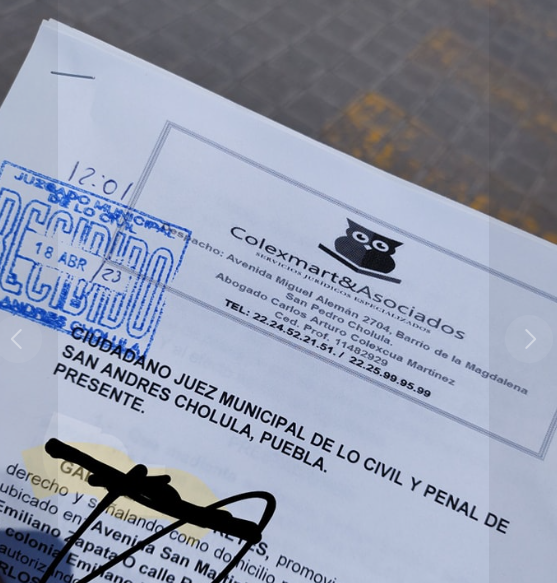 12:01
JUZGADO MUNICIPAL
DE LO CIVIL
RECIBIDO
18 ABR 23
ANDRES CHOLULA
Colexmart&Asociados
SERVICIOS JURÍDICOS ESPECIALIZADOS
espacho: Avenida Miguel Alemán 2704, Barrio de la Magdalena
San Pedro Cholula.
Abogado Carlos Arturo Colexcua Martínez
Ced. Prof. 11482929
TEL: 22.24.52.21.51. / 22.25.99.95.99
CIUDADANO JUEZ MUNICIPAL DE LO CIVIL Y PENAL DE
SAN ANDRES CHOLULA, PUEBLA.
PRESENTE.
derecho y señalando como domicilio
ubicado en Avenida San
Emiliano Zapata O calle
colonia